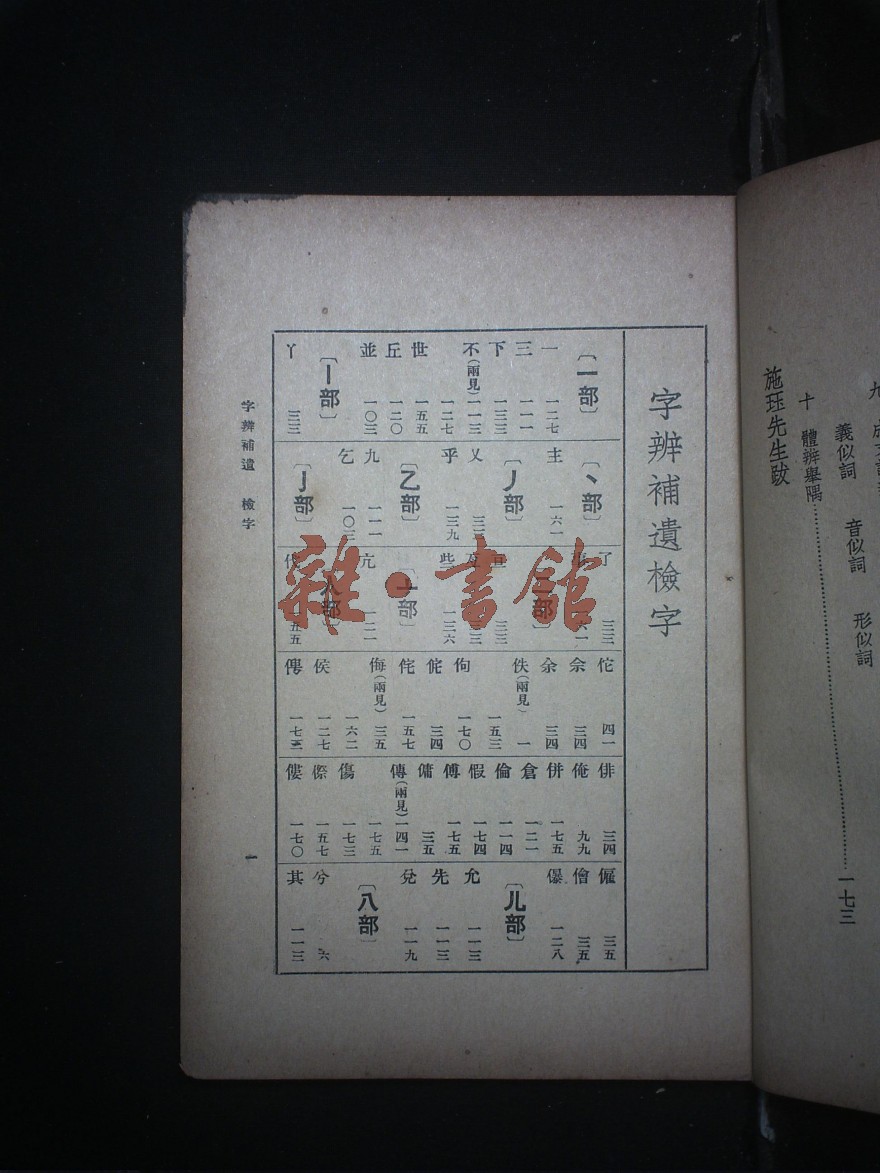 義似詞 音似詞 形似詞
十 體辨舉隅……………………一七三
施珏先生跋
字辨補遺檢字
〔一部〕
一 一二七
三 一一一
下 一三三
不(兩見) 一一三
一二七
世 一五五
丘 一二〇
並 一〇三
〔丨部〕
丫 三三
〔丶部〕
主 一六一
〔丿部〕
乂 三三
乎 一三九
〔乙部〕
九 一一一
乞 一〇三
〔亅部〕
了 三三
〔二部〕
三三
些 一三六
〔亠部〕
亢 一二一
〔人部〕
代 一五五
佗 四一
佘 三四
余 三四
佚(兩見) 一
一五三
佝 一七〇
侂 三四
侘 一五七
侮(兩見) 三五
一六二
侯 一二七
一七三
俳 三四
俺 九九
併 一七五
倉 一二一
倫 一一四
假 一七四
傅 一七五
傭 三五
傳(兩見) 一四一
一七五
傷 一七三
傺 一五七
僂 一七〇
僱 三五
儈 三五
儤 一二八
〔儿部〕
允 一一三
先 一一三
兌 一一九
〔八部〕
兮 六
其 一一三
字辨補遺 檢字
一
雜·書館